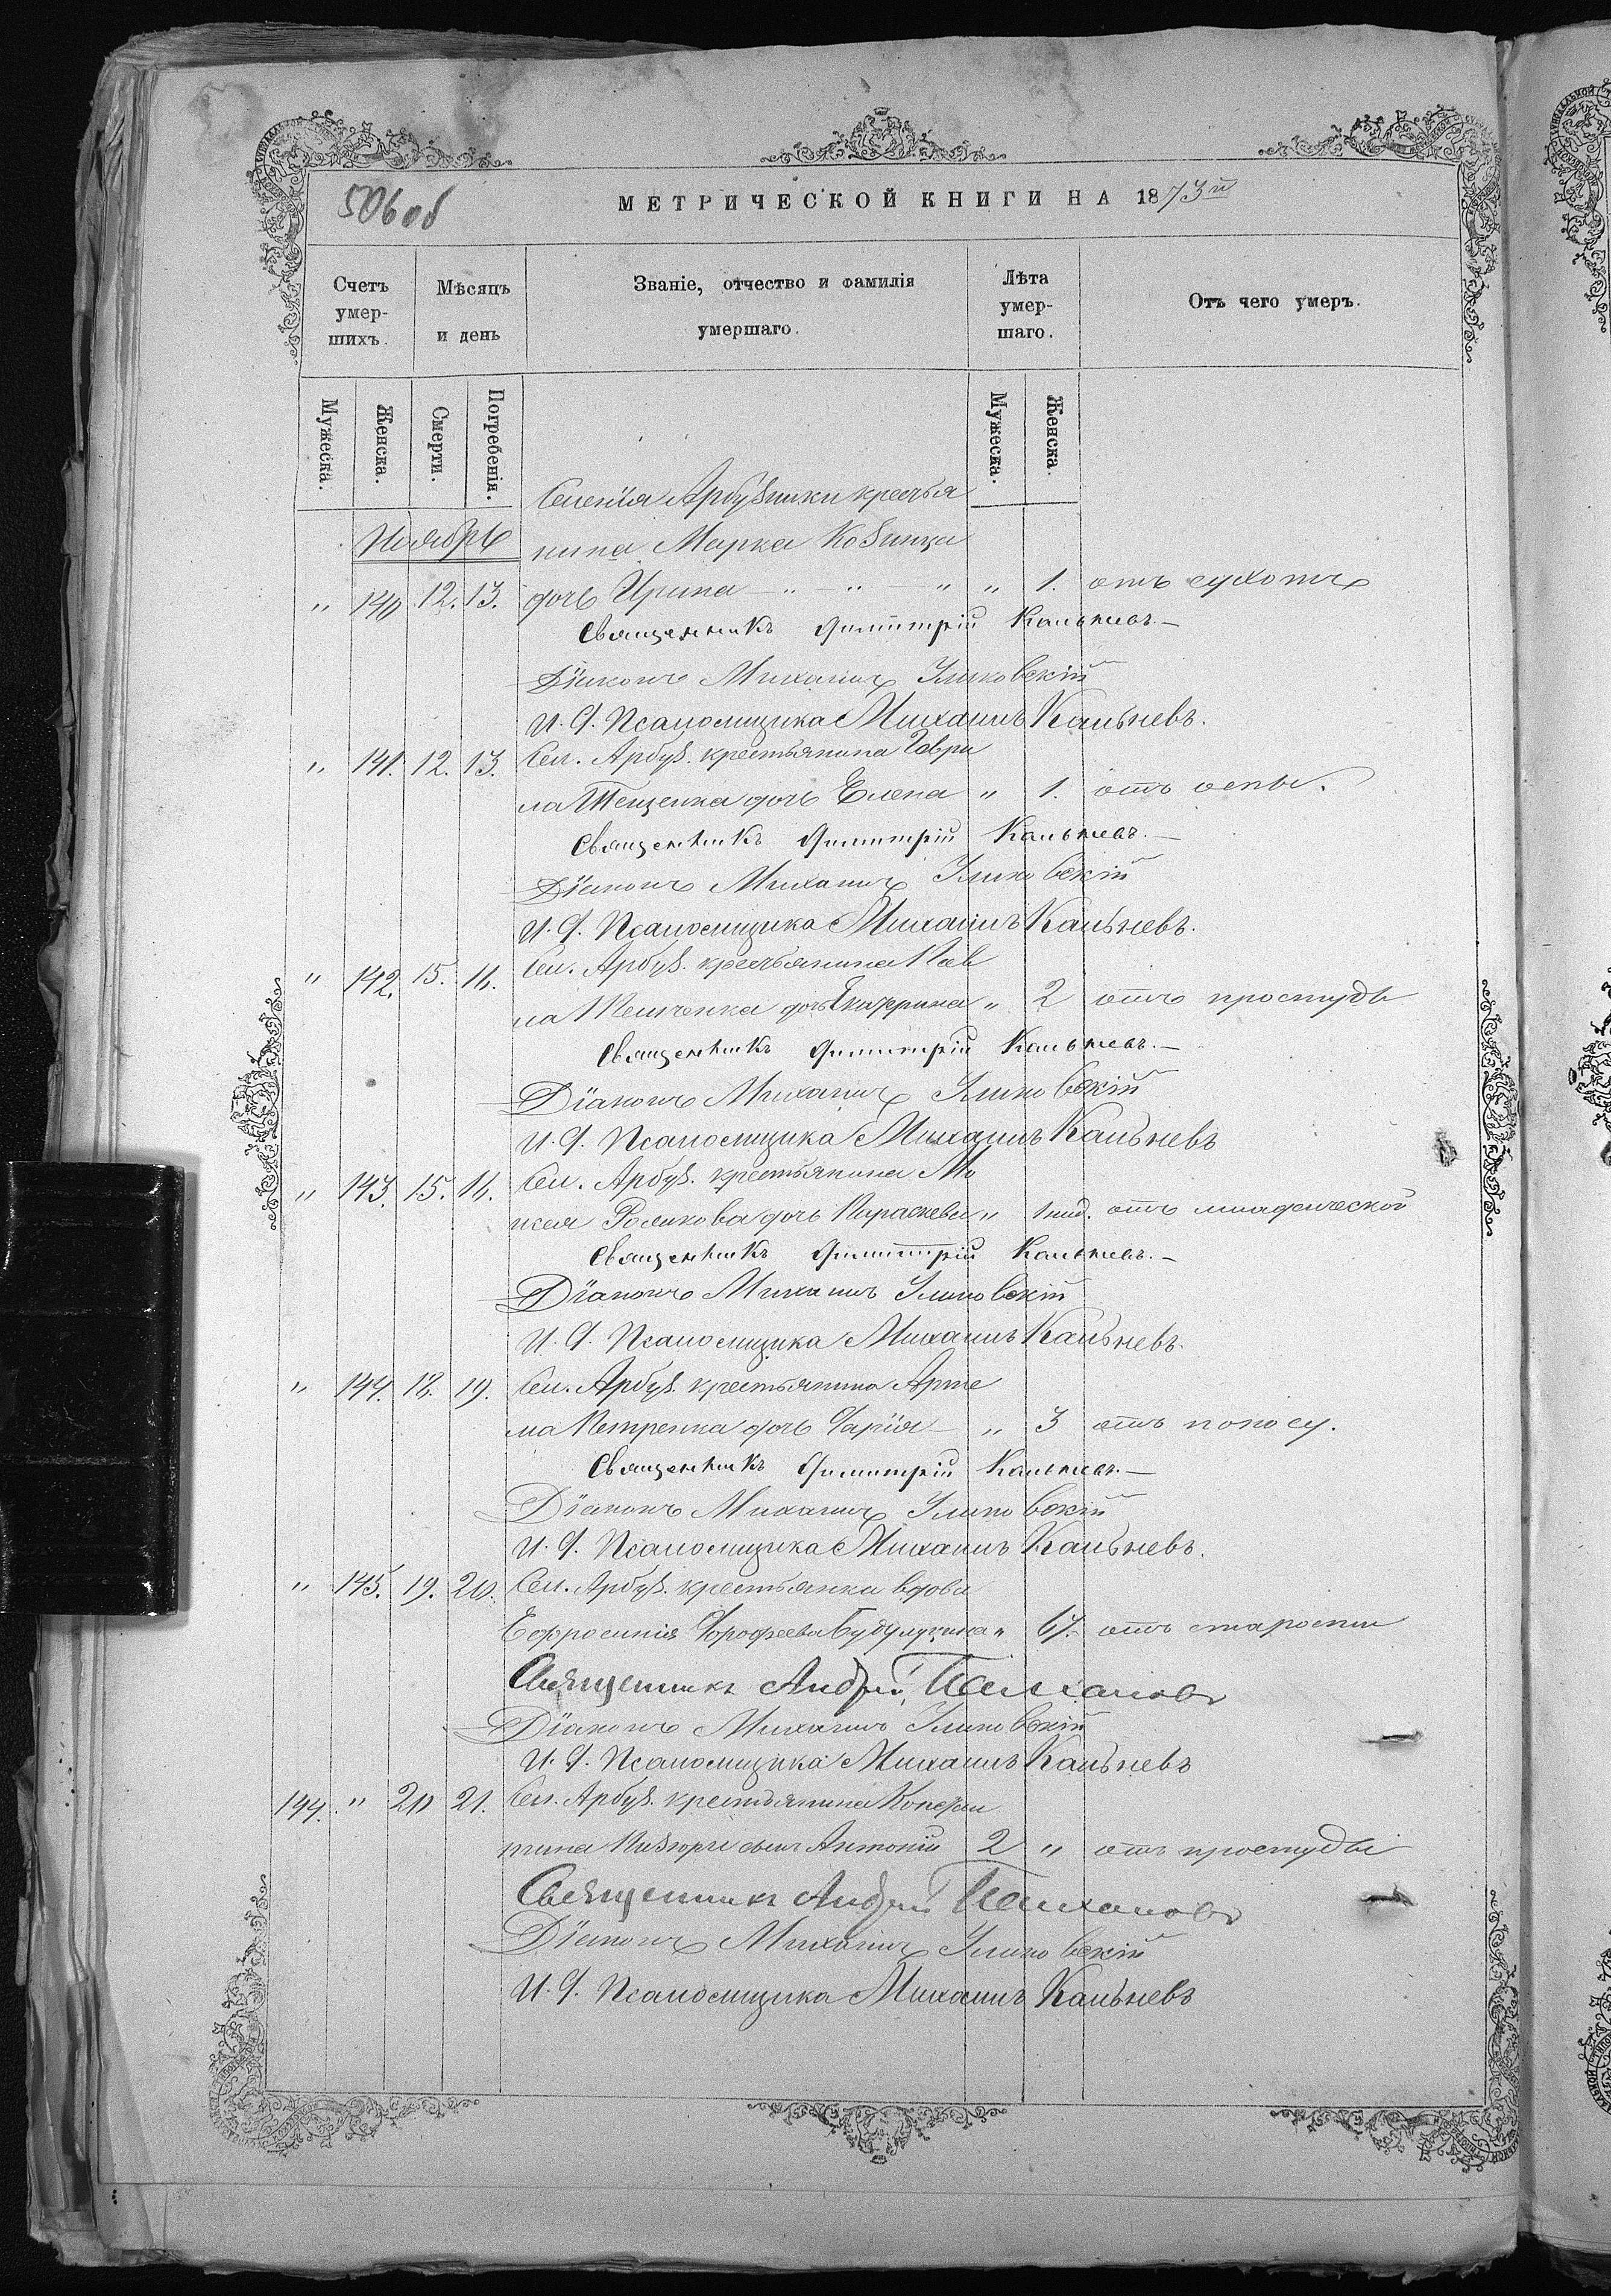 506 об
МЕТРИЧЕСКОЙ КНИГИ НА 1873й
Счетъ умер-шихъ.
Мѣсяцъ и день
Званіе, отчество и фамилія умершаго.
Лѣта умер-шаго.
Отъ чего умеръ.
Мужеска. Женска. Смерти. Погребенія. Мужеска. Женска.
Селенія Арбузинки крестья
Ноябрь
нина Марка Кобзинца
" 140 12. 13. дочь Ирина " " " " 1. отъ сухотъ
Священникъ Димитрій Кальневъ.
Діаконъ Михаилъ
И. Д. Псаломщика Михаилъ Кальневъ.
" 141. 12. 13. Сел. Арбуз. крестьянина Гаври
ла Тещенка дочь Елена " 1. отъ оспы.
Священникъ Димитрій Кальневъ.
Діаконъ Михаилъ
И. Д. Псаломщика Михаилъ Кальневъ.
" 142. 15. 16. Сел. Арбуз. крестьянина Пав
ла дочь Екатерина " 2 отъ простуды
Священникъ Димитрій Кальневъ.
Діаконъ Михаилъ
И. Д. Псаломщика Михаилъ Кальневъ
" 143. 15. 16. Сел. Арбуз. крестьянина Мо
исея дочь Параскева " 1 нид. отъ младенческой
Священникъ Димитрій Кальневъ.
Діаконъ Михаилъ
И. Д. Псаломщика Михаилъ Кальневъ.
" 144. 18. 19. Сел. Арбуз. крестьянина Арте
ма Петренка дочь Дарія " 3 отъ поносу.
Священникъ Димитрій Кальневъ.
Діаконъ Михаилъ
И. Д. Псаломщика Михаилъ Кальневъ.
" 145. 19. 20. Сел. Арбуз. крестьянка вдова
Ефросинія Дорофеева " 67. отъ старости
Священникъ Андрей
Діаконъ Михаилъ
И. Д. Псаломщика Михаилъ Кальневъ
144. " 20 21. Сел. Арбуз. крестьянина Констан
тина сынъ Антоній 2 " отъ простуды
Священникъ Андрей
Діаконъ Михаилъ
И. Д. Псаломщика Михаилъ Кальневъ